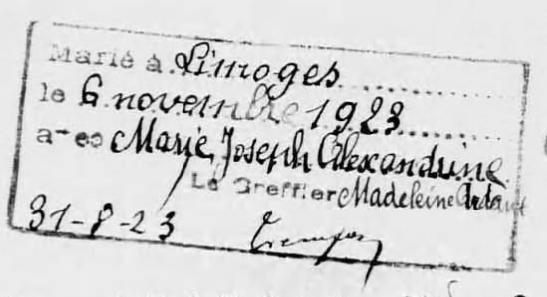 Marié à Limoges
le 6 novembre 1923
avec Marie Joseph Alexandrine
Le Greffier Madeleine Ardant
31-8-23